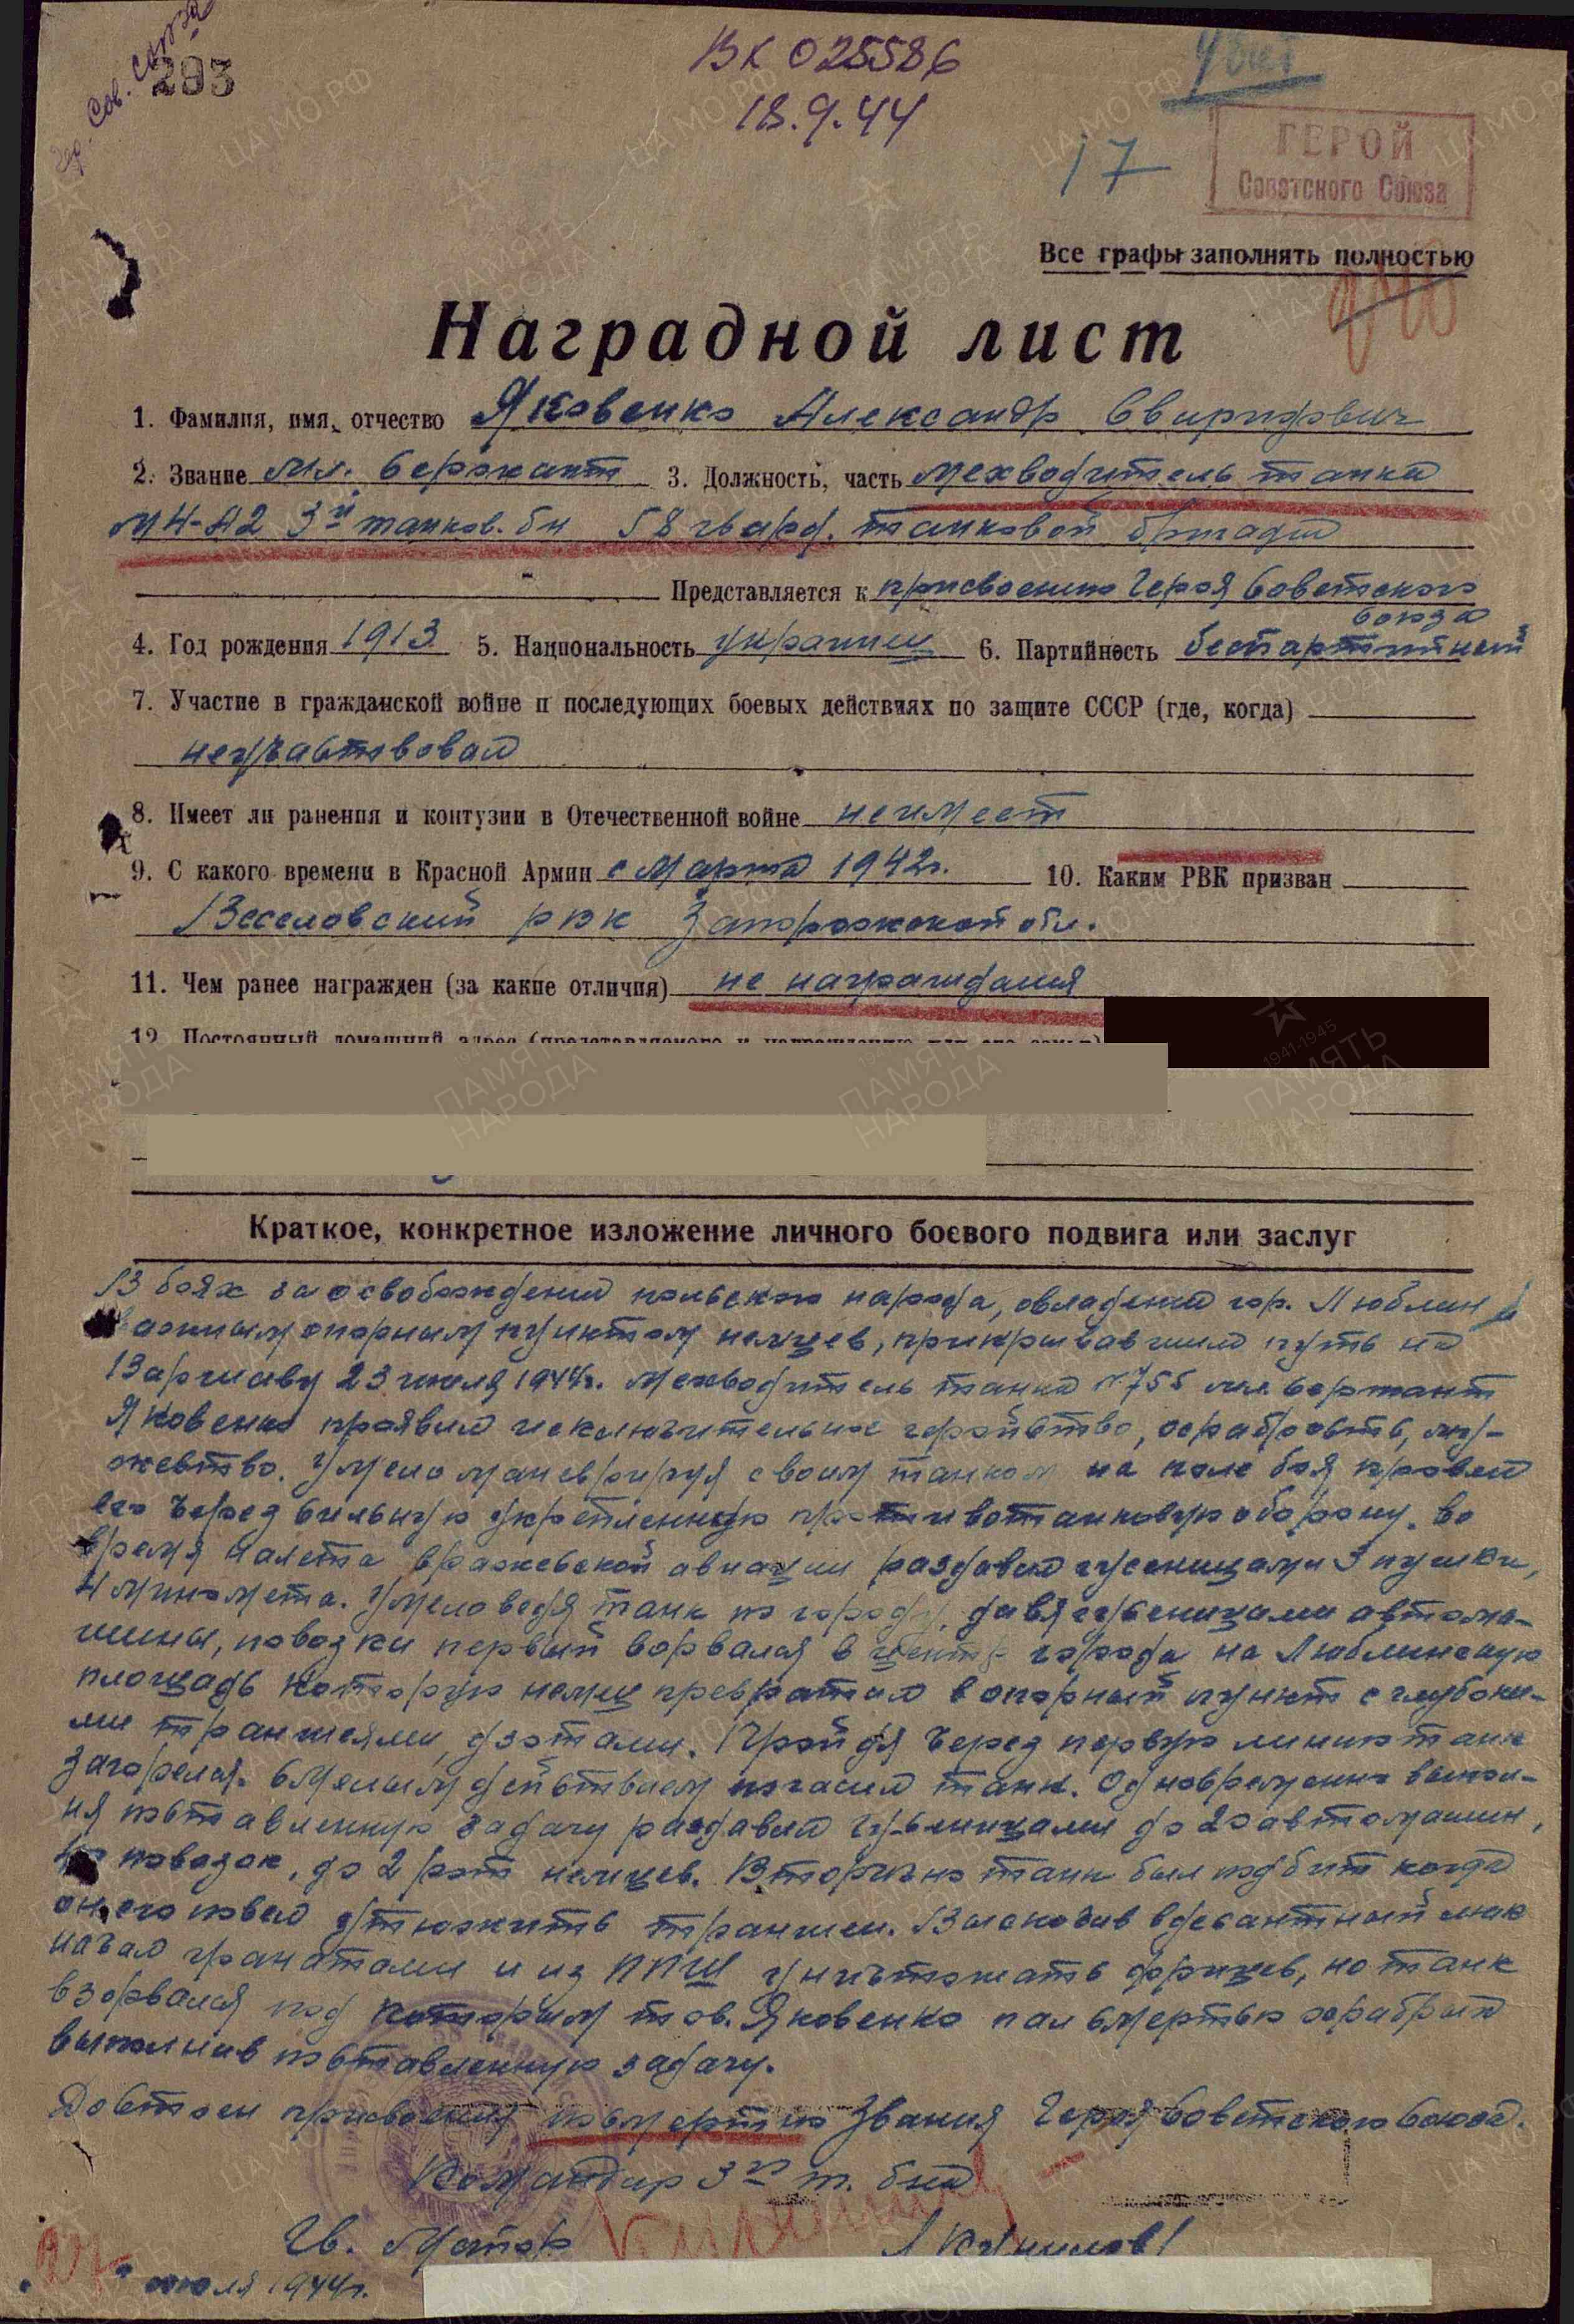 Гер. Сов. Союза
293
ВК 025586
18.9.44
Убит
17
ГЕРОЙ
Советского Союза
Все графы заполнять полностью
Наградной лист
1. Фамилия, имя, отчество Яковенко Александр Свиридович
2. Звание мл. Сержант 3. Должность, часть Мехводитель танка
М4-А2 3й танков. бн 58 гвард. танковой бригады
Представляется к присвоению Героя Советского
Союза
4. Год рождения 1913 5. Национальность украинец 6. Партийность беспартийный
7. Участие в гражданской войне и последующих боевых действиях по защите СССР (где, когда)
неучаствовал
8. Имеет ли ранения и контузии в Отечественной войне неимеет
9. С какого времени в Красной Армии с Марта 1942г. 10. Каким РВК призван
Веселовский рвк Запорожской обл.
11. Чем ранее награжден (за какие отличия) не награждался
12. Постоянный домашний адрес (представляемого к награждению или его семьи)
Краткое, конкретное изложение личного боевого подвига или заслуг
В боях за освобождения польского народа, овладения гор. Люблин
важным опорным пунктом немцев, прикрывавшим путь на
Варшаву 23 июля 1944г. Мехводитель танка №755 мл. Сержант
Яковенко проявил исключительное геройство, храбрость, му-
жество. Умело маневрируя своим танком на поле боя провел
его через сильную укрепленную противотанковую оборону. Во
время налета вражеской авиации раздавил гусеницами 3 пушки,
4 миномета. Умело ведя танк по городу, давя гусеницами автома-
шины, повозки первый ворвался в центр города на Люблинскую
площадь которую немец превратил в опорный пункт с глубоки-
ми траншеями, дзотами. Пройдя через первую линию танк
загорелся. Смелым действием погасил танк. Одновременно выпол-
няя поставленную задачу раздавил гусеницами до 20 автомашин,
повозок, до 2 рот немцев. Вторично танк был подбит когда
он его повел утюжить траншеи. Выскочив в десантный люк
начал гранатами и из ППШ уничтожать фрицев, но танк
взорвался под которым тов. Яковенко пал смертью храбрых
выполнив поставленную задачу.
Достоен присвоения посмертно Звания Героя Советского Союза.
Командир 3го т. б-на
Гв. Майор /Куницов/
" " июля 1944г.